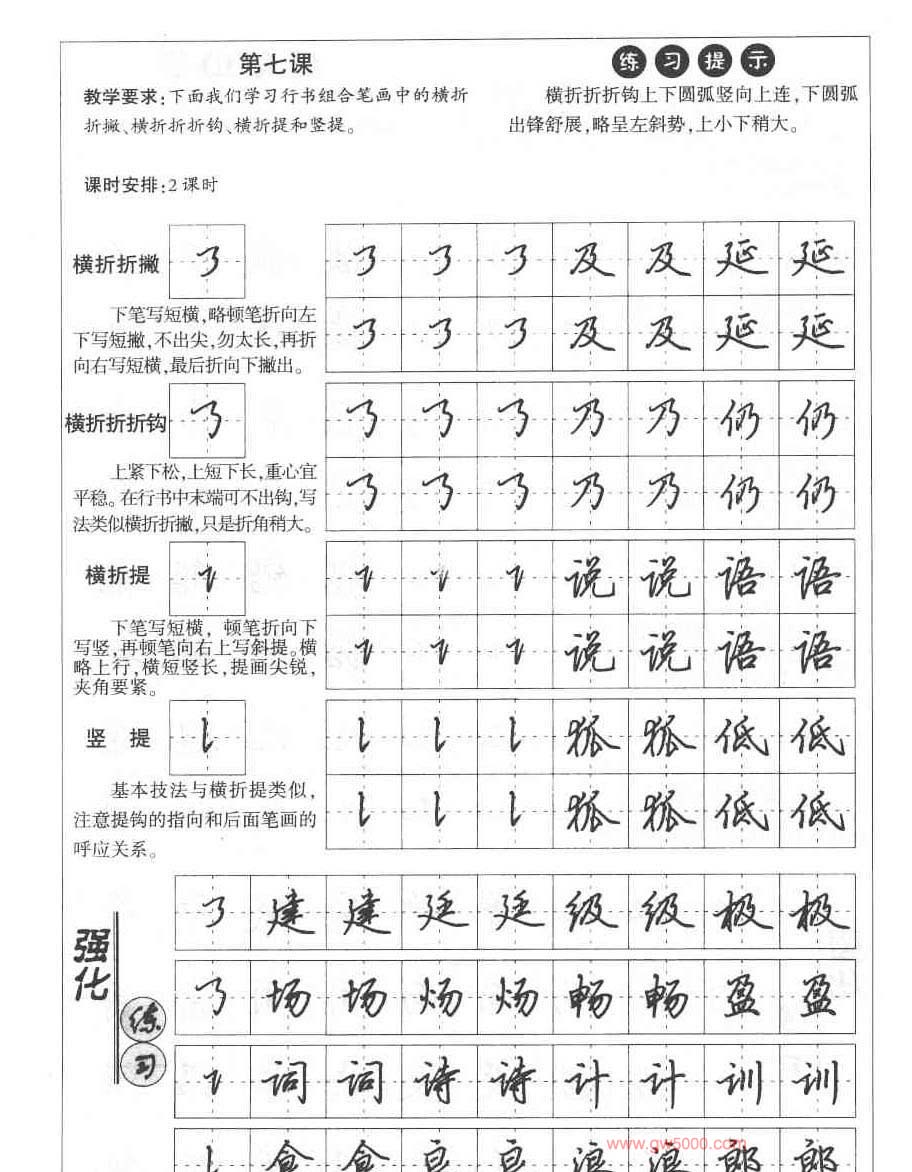 第七课
教学要求:下面我们学习行书组合笔画中的横折
折撇、横折折折钩、横折提和竖提。
课时安排:2课时
练习提示
横折折折钩上下圆弧竖向上连,下圆弧
出锋舒展,略呈左斜势,上小下稍大。
横折折撇
下笔写短横,略顿笔折向左
下写短撇,不出尖,勿太长,再折
向右写短横,最后折向下撇出。
及及延延
及及延延
横折折折钩
上紧下松,上短下长,重心宜
平稳。在行书中末端可不出钩,写
法类似横折折撇,只是折角稍大。
乃乃仍仍
乃乃仍仍
横折提
下笔写短横,顿笔折向下
写竖,再顿笔向右上写斜提。横
略上行,横短竖长,提画尖锐,
夹角要紧。
说说语语
说说语语
竖提
基本技法与横折提类似,
注意提钩的指向和后面笔画的
呼应关系。
狐狐低低
狐狐低低
强化
练习
建建廷廷级级极极
场场炀炀畅畅盈盈
词词诗诗计计训训
食食良良浪浪郎郎
www.gw5000.com